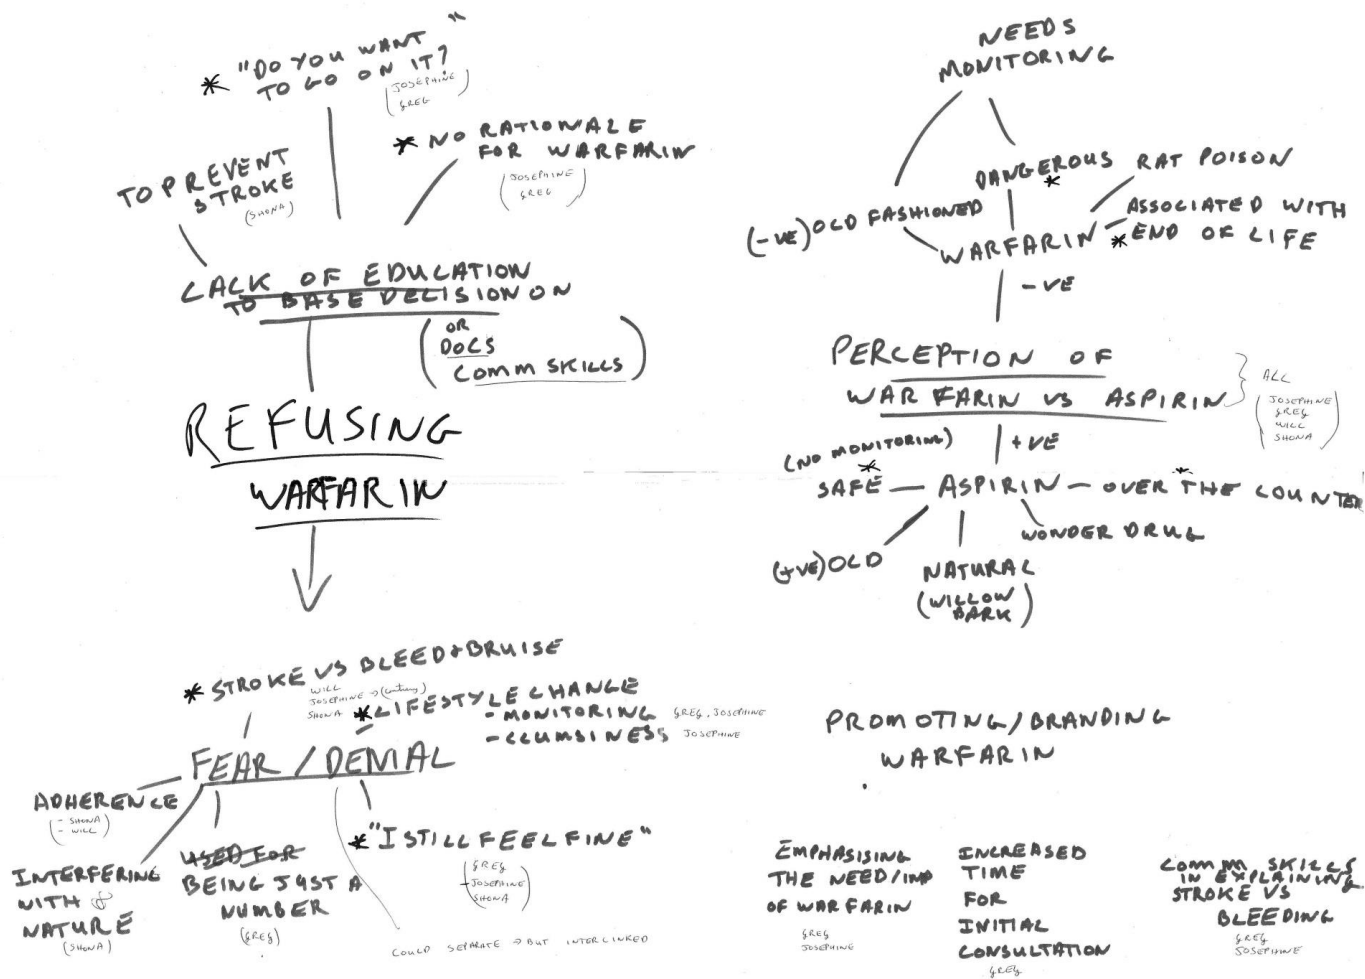 * "DO YOU WANT
TO GO ON IT? "
(JOSEPHINE
GREG)
* NO RATIONALE
FOR WARFARIN
(JOSEPHINE
GREG)
TO PREVENT
STROKE
(SHONA)
LACK OF EDUCATION
TO BASE DECISION ON
(OR
DOCS
COMM SKILLS)
REFUSING
WARFARIN
* STROKE VS BLEED + BRUISE
WILL
JOSEPHINE →
SHONA
* LIFESTYLE CHANGE
- MONITORING GREG, JOSEPHINE
- CLUMSINESS JOSEPHINE
FEAR / DENIAL
ADHERENCE
(- SHONA
- WILL)
INTERFERING
WITH
NATURE
(SHONA)
USED FOR
BEING JUST A
NUMBER
(GREG)
* "I STILL FEEL FINE"
(GREG
- JOSEPHINE
SHONA)
COULD SEPARATE → BUT INTERLINKED
NEEDS
MONITORING
DANGEROUS
*
RAT POISON
(-VE) OLD FASHIONED
ASSOCIATED WITH
* END OF LIFE
WARFARIN
-VE
PERCEPTION OF
WARFARIN VS ASPIRIN
ALL
(JOSEPHINE
GREG
WILL
SHONA)
+VE
(NO MONITORING)
*
SAFE — ASPIRIN — OVER THE COUNTER
*
WONDER DRUG
(+VE) OLD
NATURAL
(WILLOW
BARK)
PROMOTING/BRANDING
WARFARIN
EMPHASISING
THE NEED/IMP
OF WARFARIN
GREG
JOSEPHINE
INCREASED
TIME
FOR
INITIAL
CONSULTATION
GREG
COMM SKILLS
IN EXPLAINING
STROKE VS
BLEEDING
GREG
JOSEPHINE